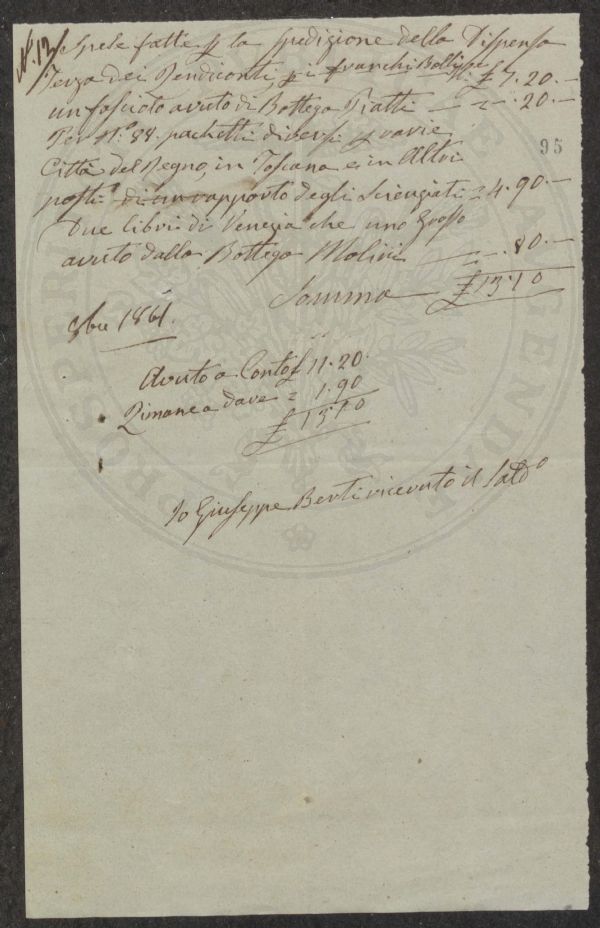 N. 12
Spese fatte p la Spedizione della Dispensa
Terza dei Rendiconti, p franchi Bolli £ 7.20.—
un fascioto avuto di Bottega Piatti — — .20.—
Per N.° 84. pachetti diversi p varie
95
Città del Regno, in Toscana e in Altri
posti di un rapporto degli Scienziati = 4.90.—
Due libri di Venezia che uno Grosso
avuto dalla Bottega Molini — — .80.—
Somma — £ 13.10
9bre 1861.
Avuto a Conto £ 11.20.
Rimane a dare = 1.90
£ 13.10
Io Giuseppe Berti ricevuto il Saldo
PROSPERI